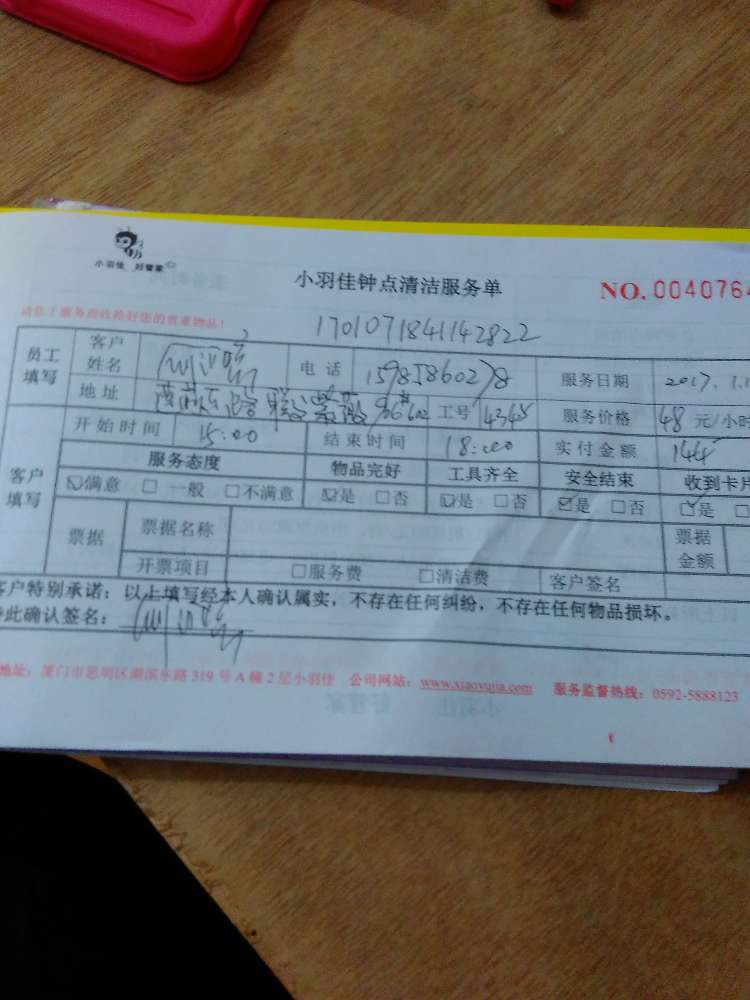 小羽佳 好管家
小羽佳钟点清洁服务单
NO. 0040764
请您于服务前收拾好您的贵重物品！
1701071841142822
员工填写 客户姓名 电话 服务日期 2017.1.1
地址 工号 4345 服务价格 48 元/小时
客户填写 开始时间 15:00 结束时间 18:00 实付金额 144
服务态度 物品完好 工具齐全 安全结束 收到卡片
☑满意 □一般 □不满意 ☑是 □否 ☑是 □否 ☑是 □否 ☑是 □
票据 票据名称 票据金额
开票项目 □服务费 □清洁费 客户签名
客户特别承诺：以上填写经本人确认属实，不存在任何纠纷，不存在任何物品损坏。
此确认签名：
地址：厦门市思明区湖滨东路 319 号 A 幢 2 层小羽佳 公司网站：www.xiaoyujia.com 服务监督热线：0592-5888123